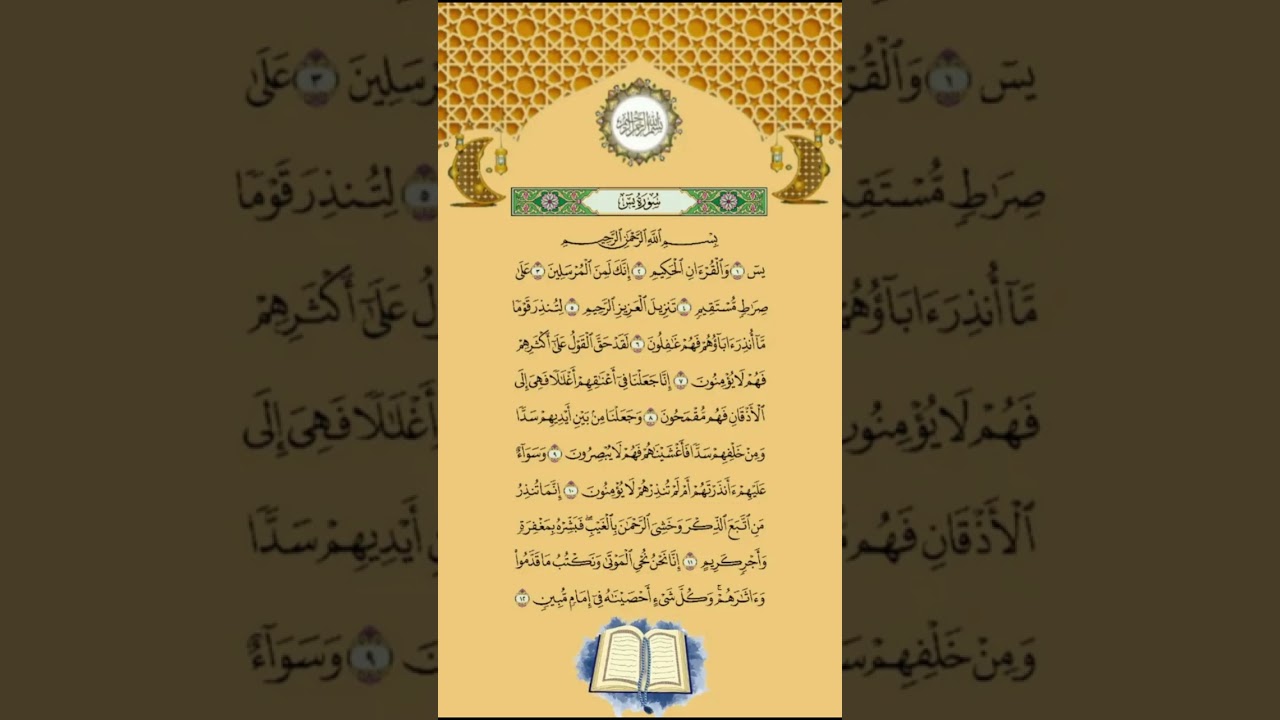 بسم الله الرحمن الرحيم
سُورَةُ يسٓ
بِسْمِ ٱللَّهِ ٱلرَّحْمَٰنِ ٱلرَّحِيمِ
يسٓ ١ وَٱلْقُرْءَانِ ٱلْحَكِيمِ ٢ إِنَّكَ لَمِنَ ٱلْمُرْسَلِينَ ٣ عَلَىٰ
صِرَٰطٍ مُّسْتَقِيمٍ ٤ تَنزِيلَ ٱلْعَزِيزِ ٱلرَّحِيمِ ٥ لِتُنذِرَ قَوْمًا
مَّآ أُنذِرَ ءَابَآؤُهُمْ فَهُمْ غَٰفِلُونَ ٦ لَقَدْ حَقَّ ٱلْقَوْلُ عَلَىٰٓ أَكْثَرِهِمْ
فَهُمْ لَا يُؤْمِنُونَ ٧ إِنَّا جَعَلْنَا فِىٓ أَعْنَٰقِهِمْ أَغْلَٰلًا فَهِىَ إِلَى
ٱلْأَذْقَانِ فَهُم مُّقْمَحُونَ ٨ وَجَعَلْنَا مِنۢ بَيْنِ أَيْدِيهِمْ سَدًّا
وَمِنْ خَلْفِهِمْ سَدًّا فَأَغْشَيْنَٰهُمْ فَهُمْ لَا يُبْصِرُونَ ٩ وَسَوَآءٌ
عَلَيْهِمْ ءَأَنذَرْتَهُمْ أَمْ لَمْ تُنذِرْهُمْ لَا يُؤْمِنُونَ ١٠ إِنَّمَا تُنذِرُ
مَنِ ٱتَّبَعَ ٱلذِّكْرَ وَخَشِىَ ٱلرَّحْمَٰنَ بِٱلْغَيْبِ ۖ فَبَشِّرْهُ بِمَغْفِرَةٍ
وَأَجْرٍ كَرِيمٍ ١١ إِنَّا نَحْنُ نُحْىِ ٱلْمَوْتَىٰ وَنَكْتُبُ مَا قَدَّمُوا۟
وَءَاثَٰرَهُمْ ۚ وَكُلَّ شَىْءٍ أَحْصَيْنَٰهُ فِىٓ إِمَامٍ مُّبِينٍ ١٢